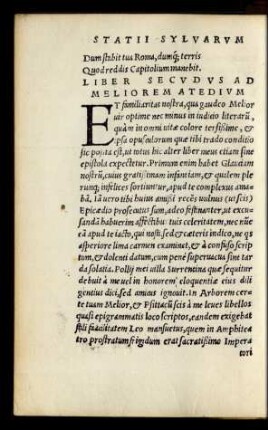 STATII SYLVARVM
Dum stabit tua Roma, dumq; terris
Quod reddis Capitolium manebit.
LIBER SECVDVS AD
MELIOREM ATEDIVM
ET familiaritas nostra, qua gaudeo Melior
uir optime nec minus in iudicio literarū,
quā in omni uitæ colore tersissime, & ip
psa opusculorum quæ tibi trado conditio
sic posita est, ut totus hic alter liber meus etiam sine
epistola expectetur. Primum enim habet Glauciam
nostrū, cuius gratissimam infantiam, & qualem ple
runq; infelices sortiuntur, apud te complexus ama-
bā. Iā uero tibi huius amissi recēs uulnus (ut scis)
Epicædio prosecutus sum, adeo festinanter, ut excu
sandā habuerim affectibus tuis celeritatem, nec nūc
eā apud te iacto, qui nosti, sed & cæteris indico, ne qs
asperiore lima carmen examinet, & à confuso scrip
tum, & dolenti datum, cum pene superuacua sint tar
da solatia. Pollij mei uilla Surrentina quæ sequitur
debuit à me uel in honorem eloquentiæ eius dili
gentius dici, sed amicus ignouit. In Arborem cer
te tuam Melior, & Psitacū scis à me leues libellos
quasi epigrammatis loco scriptos, eandem exigebat
stili facilitatem Leo mansuetus, quem in Amphitea
tro prostratum frigidum erat sacratissimo Impera
tori